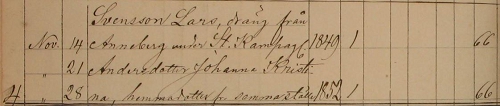 Svensson Lars, dräng från
Nov. 14 Anneberg under St. Kampag 6/1849 1 66
" 21 Andersdotter Johanna Christi-
4 " 28 na, hemmadotter fr. samma ställe 1852 1 66